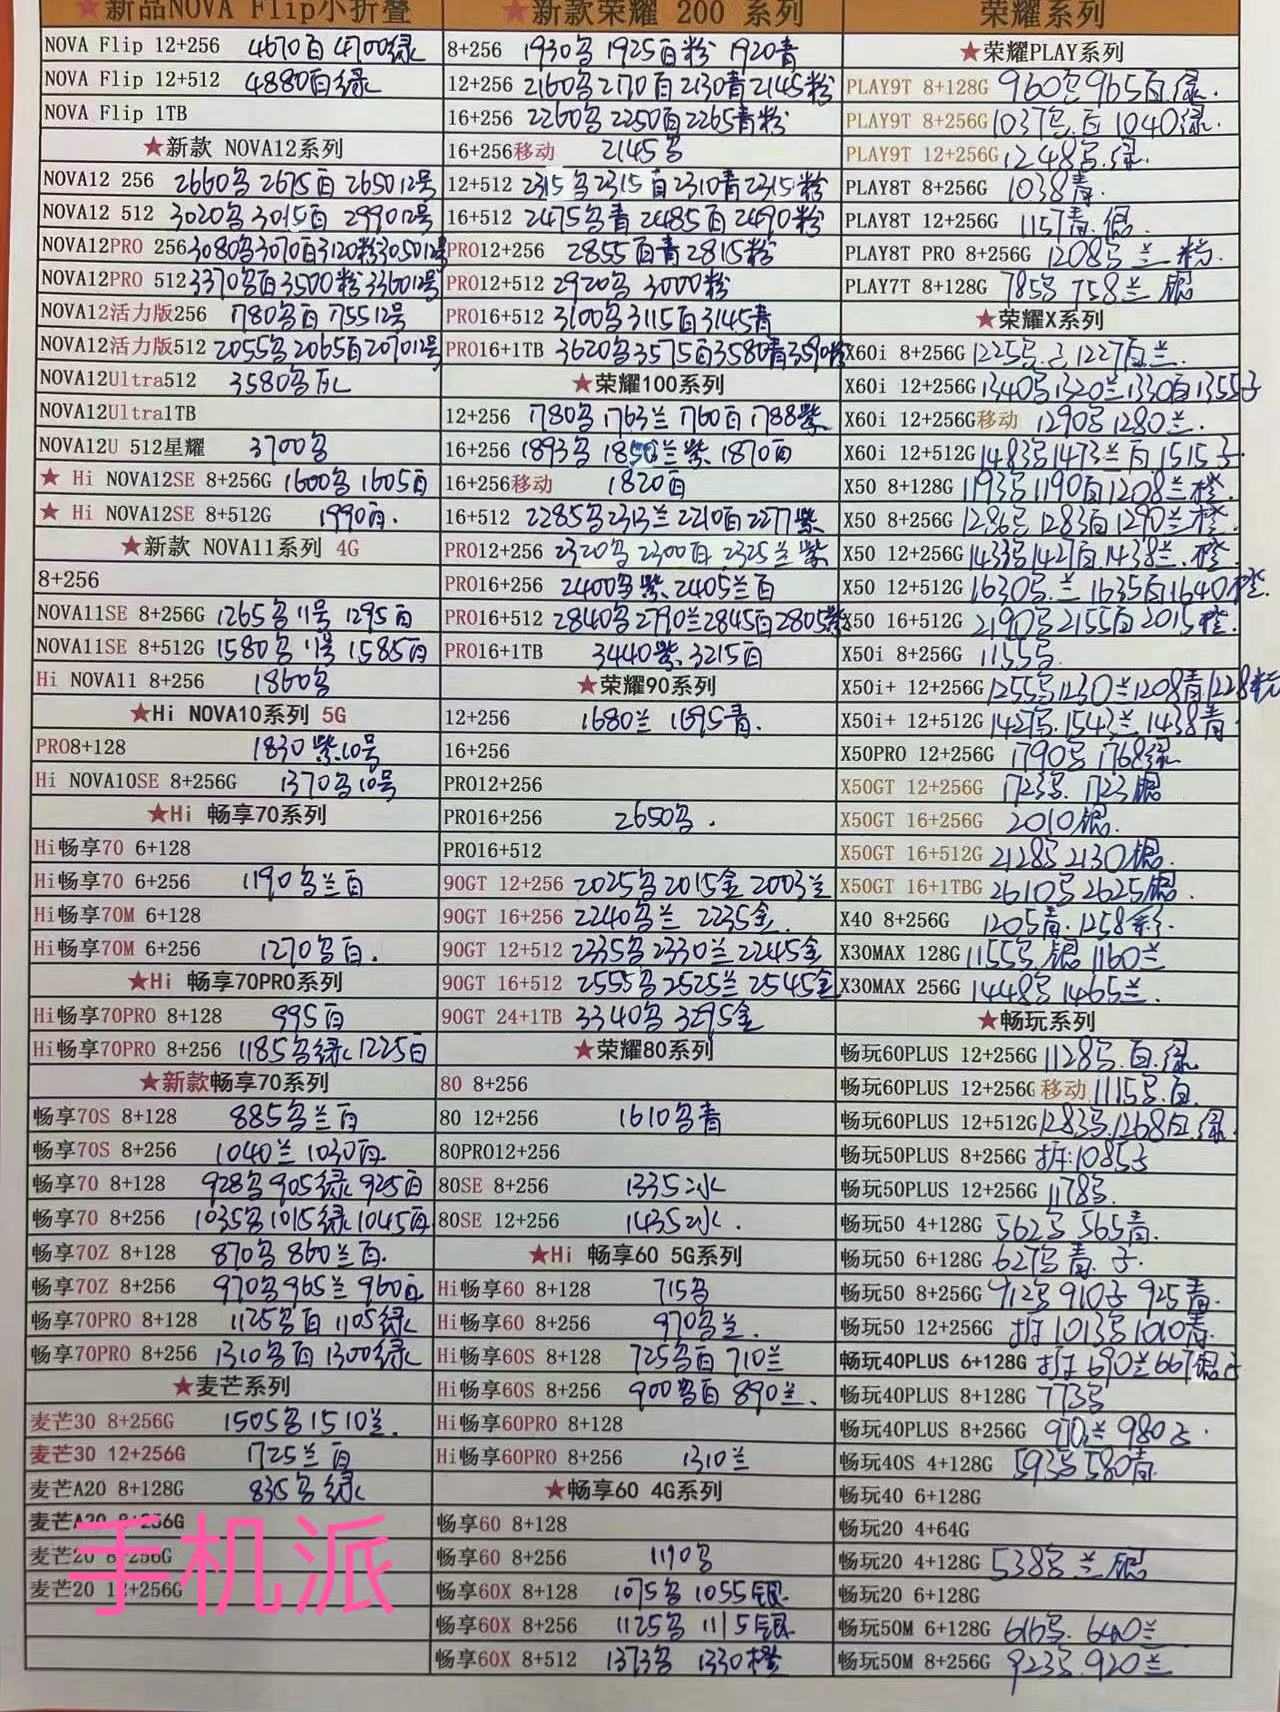 ★新品NOVA Flip小折叠
NOVA Flip 12+256 4670白 4700绿
NOVA Flip 12+512 4880白绿
NOVA Flip 1TB
★新款 NOVA12系列
NOVA12 256 2660 2675白 2650 12号
NOVA12 512 3020 3015白 2990 12号
NOVA12PRO 256 3080 3070白 3120粉 3050 12号
NOVA12PRO 512 3370 白 3500粉 3360 12号
NOVA12活力版256 1780 白 1755 12号
NOVA12活力版512 2055 2065白 2070 12号
NOVA12Ultra512 3580
NOVA12Ultra1TB
NOVA12U 512星耀 3700
★ Hi NOVA12SE 8+256G 1600 1605白
★ Hi NOVA12SE 8+512G 1990白.
★新款 NOVA11系列 4G
8+256
NOVA11SE 8+256G 1265 11号 1295白
NOVA11SE 8+512G 1580 11号 1585白
Hi NOVA11 8+256 1860
★Hi NOVA10系列 5G
PRO8+128 1830紫.10号
Hi NOVA10SE 8+256G 1370 10号
★Hi 畅享70系列
Hi畅享70 6+128
Hi畅享70 6+256 1190 兰白
Hi畅享70M 6+128
Hi畅享70M 6+256 1270 白.
★Hi 畅享70PRO系列
Hi畅享70PRO 8+128 995白
Hi畅享70PRO 8+256 1185 绿 1225白
★新款畅享70系列
畅享70S 8+128 885 兰白
畅享70S 8+256 1040兰 1030白
畅享70 8+128 928 905绿 925白
畅享70 8+256 1035 1015绿 1045白
畅享70Z 8+128 870 860兰白.
畅享70Z 8+256 970 965兰 960白
畅享70PRO 8+128 1125 白 1105绿
畅享70PRO 8+256 1310 白 1300绿
★麦芒系列
麦芒30 8+256G 1505 1510兰.
麦芒30 12+256G 1725兰白
麦芒A20 8+128G 835 绿
麦芒A20 8+256G
麦芒20 8+256G
麦芒20 12+256G
手机派
★新款荣耀 200 系列
8+256 1930 1925白粉 1920青
12+256 2160 2170白 2130青 2145粉
16+256 2260 2250白 2265青粉
16+256移动 2145
12+512 2315 2315白 2310青 2315粉
16+512 2475 青 2485白 2490粉
PRO12+256 2855白青 2815粉
PRO12+512 2920 3000粉
PRO16+512 3100 3115白 3145青
PRO16+1TB 3620 3575白 3580青 3590粉
★荣耀100系列
12+256 1780 1763兰 1760白 1788紫
16+256 1893 兰紫 1870白
16+256移动 1820白
16+512 2285 2313兰 2210白 2277紫
PRO12+256 2320 2300白 2325兰紫
PRO16+256 2400 紫 2405兰白
PRO16+512 2840 2790兰 2845白 2805紫
PRO16+1TB 3440紫. 3215白
★荣耀90系列
12+256 1680兰 1695青.
16+256
PRO12+256
PRO16+256 2650 .
PRO16+512
90GT 12+256 2025 2015金 2003兰
90GT 16+256 2240 兰 2235金.
90GT 12+512 2335 2330兰 2245金
90GT 16+512 2555 2525兰 2545金
90GT 24+1TB 3340 3295金
★荣耀80系列
80 8+256
80 12+256 1610 青
80PRO12+256
80SE 8+256 1335冰
80SE 12+256 1435冰.
★Hi 畅享60 5G系列
Hi畅享60 8+128 715
Hi畅享60 8+256 970 兰.
Hi畅享60S 8+128 725 白 710兰
Hi畅享60S 8+256 900 白 890兰.
Hi畅享60PRO 8+128
Hi畅享60PRO 8+256 1310兰
★畅享60 4G系列
畅享60 8+128
畅享60 8+256 1190
畅享60X 8+128 1075 1055银
畅享60X 8+256 1125 1115银
畅享60X 8+512 1373 1330橙
荣耀系列
★荣耀PLAY系列
PLAY9T 8+128G 960 965白.绿.
PLAY9T 8+256G 1037 .白 1040绿.
PLAY9T 12+256G 1248 .绿.
PLAY8T 8+256G 1038青.
PLAY8T 12+256G 1157青.银
PLAY8T PRO 8+256G 1208 兰 粉.
PLAY7T 8+128G 785 758兰 银
★荣耀X系列
X60i 8+256G 1225 1227白兰.
X60i 12+256G 1340 1320兰 1330白 1355
X60i 12+256G移动 1290 1280兰.
X60i 12+512G 1483 1473兰白 1515
X50 8+128G 1193 1190白 1208兰橙.
X50 8+256G 1286 1283白 1290兰橙
X50 12+256G 1433 1427白.1438兰.橙
X50 12+512G 1630 .兰 1635白 1640橙.
X50 16+512G 2190 2155白 2015橙.
X50i 8+256G 1155
X50i+ 12+256G 1255 1230兰 1208青 1228粉
X50i+ 12+512G 1427 .1543兰 1438青
X50PRO 12+256G 1790 1768绿
X50GT 12+256G 1723 . 1723银
X50GT 16+256G 2010银.
X50GT 16+512G 2128 2130银.
X50GT 16+1TBG 2610 2625银.
X40 8+256G 1205青. 1258彩.
X30MAX 128G 1155 .银 1160兰
X30MAX 256G 1448 1465兰.
★畅玩系列
畅玩60PLUS 12+256G 1128 .白.绿
畅玩60PLUS 12+256G 移动 1115 .白.
畅玩60PLUS 12+512G 1283 .1268白.绿.
畅玩50PLUS 8+256G 拆:1085
畅玩50PLUS 12+256G 1178 .
畅玩50 4+128G 562 565青.
畅玩50 6+128G 627 青.
畅玩50 8+256G 912 910 925青.
畅玩50 12+256G 拆 1013 1010青.
畅玩40PLUS 6+128G 拆 690兰 667银
畅玩40PLUS 8+128G 773
畅玩40PLUS 8+256G 970兰 980
畅玩40S 4+128G 593 580青.
畅玩40 6+128G
畅玩20 4+64G
畅玩20 4+128G 538 兰 银
畅玩20 6+128G
畅玩50M 6+128G 616 . 640兰
畅玩50M 8+256G 923 .920兰